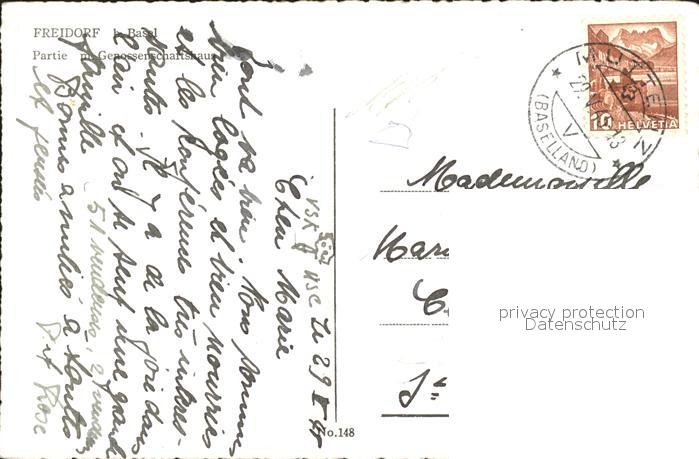 FREIDORF b. Basel
Partie m. Genossenschaftshaus
VSK USC Le 29 V 48
Chère Marie
Tout va bien. Nous sommes
bien logées et bien nourries
et les conférences très intéres-
santes. Il y a de la joie dans
l'air et on se sent une grande
famille 51 vendeuses, 2 vendeurs
Bonnes amitiés à toutes
et Rose
No.148
MUTTENZ
29.V.48
(BASELLAND)
V
10 HELVETIA
Mademoiselle
St
privacy protection
Datenschutz